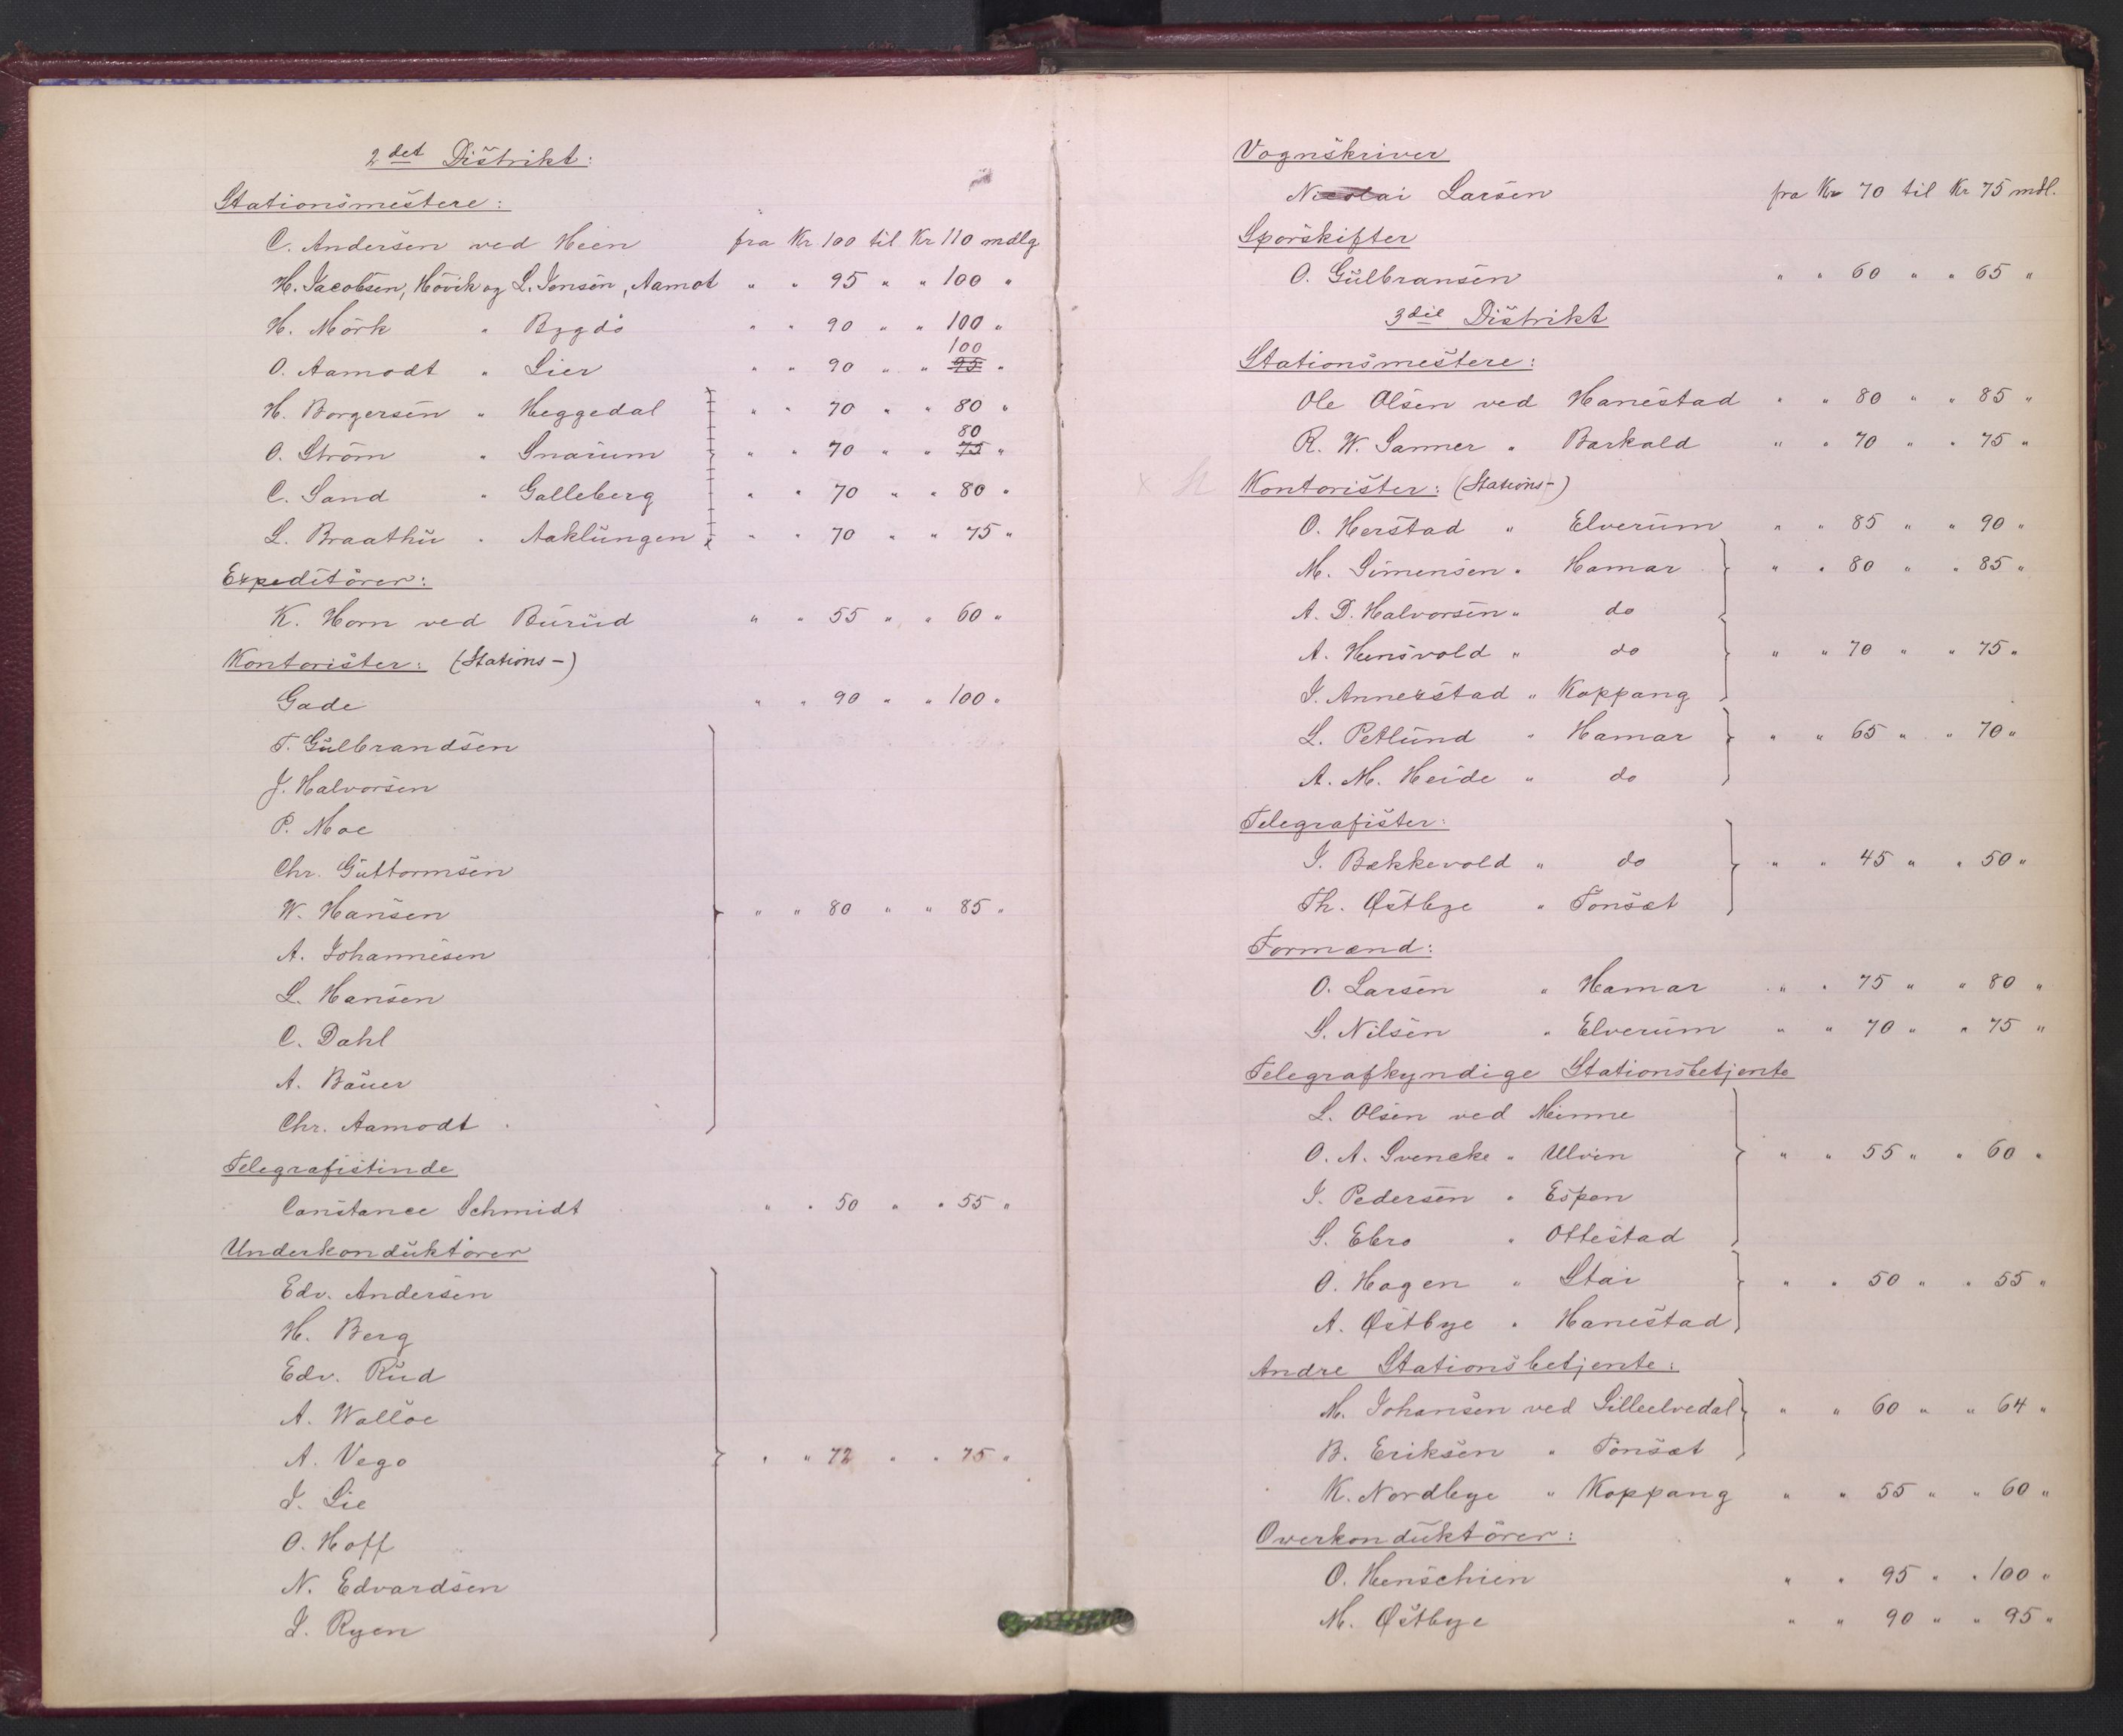 2det Distrikt:
Stationsmestere:
C. Andersen ved Heen fra Kr. 100 til Kr 110 mdlg
H. Jacobsen, Hövik og L. Jensen, Aamot " " 95 " " 100 "
H. Mörk " Bygdö " " 90 " " 100 "
100
O. Aamodt " Lier " " 90 " " 95 "
H. Borgersen " Heggedal " " 70 " " 80 "
80
O. Ström " Snarum " " 70 " " 75 "
C. Sand " Galleberg " " 70 " " 80 "
L. Braathu " Aaklungen " " 70 " " 75 "
Expeditörer:
K. Horn ved Burud " " 55 " " 60 "
Kontorister: (Stations-)
Gade " " 90 " " 100 "
T. Gulbrandsen
J. Halvorsen
P. Moe
Chr. Guttormsen
W. Hansen " " 80 " " 85 "
A. Johannesen
L. Hansen
C. Dahl
A. Bauer
Chr. Aamodt
Telegrafistinde
Constance Schmidt " " 50 " " 55 "
Underkonduktörer
Edv. Andersen
H. Berg
Edv. Rud
A. Wallöe
A. Vego " " 72 " " 75 "
J. Lie
O. Hoff
N. Edvardsen
J. Ryen
Vognskriver
Nicolai Larsen fra Kr 70 til Kr 75 mdl.
Sporskifter
O. Gulbransen " " 60 " " 65 "
3die Distrikt
Stationsmestere:
Ole Olsen ved Hanestad " " 80 " " 85 "
R. W. Sanner " Barkald " " 70 " " 75 "
Kontorister: (Stations-)
O. Herstad " Elverum " " 85 " " 90 "
M. Simensen " Hamar " " 80 " " 85 "
A. D. Halvorsen " do
A. Hensvold " do " " 70 " " 75 "
J. Annerstad " Koppang
L. Petlund " Hamar " " 65 " " 70 "
A. M. Heide " do
Telegrafister:
J. Bækkevold " do " " 45 " " 50 "
Th. Østbye " Tönsæt
Formænd:
O. Larsen " Hamar " " 75 " " 80 "
S. Nilsen " Elverum " " 70 " " 75 "
Telegrafkyndige Stationsbetjente
L. Olsen ved Minne
O. A. Svencke " Ulvin " " 55 " " 60 "
J. Pedersen " Espen
S. Ebro " Ottestad
O. Hagen " Stai " " 50 " " 55 "
A. Østbye " Hanestad
Andre Stationsbetjente:
M. Johansen ved Lilleelvedal " " 60 " " 64 "
B. Eriksen " Tönsæt
K. Nordbye " Koppang " " 55 " " 60 "
Overkonduktörer:
O. Henschien " " 95 " " 100 "
M. Østbye " " 90 " " 95 "